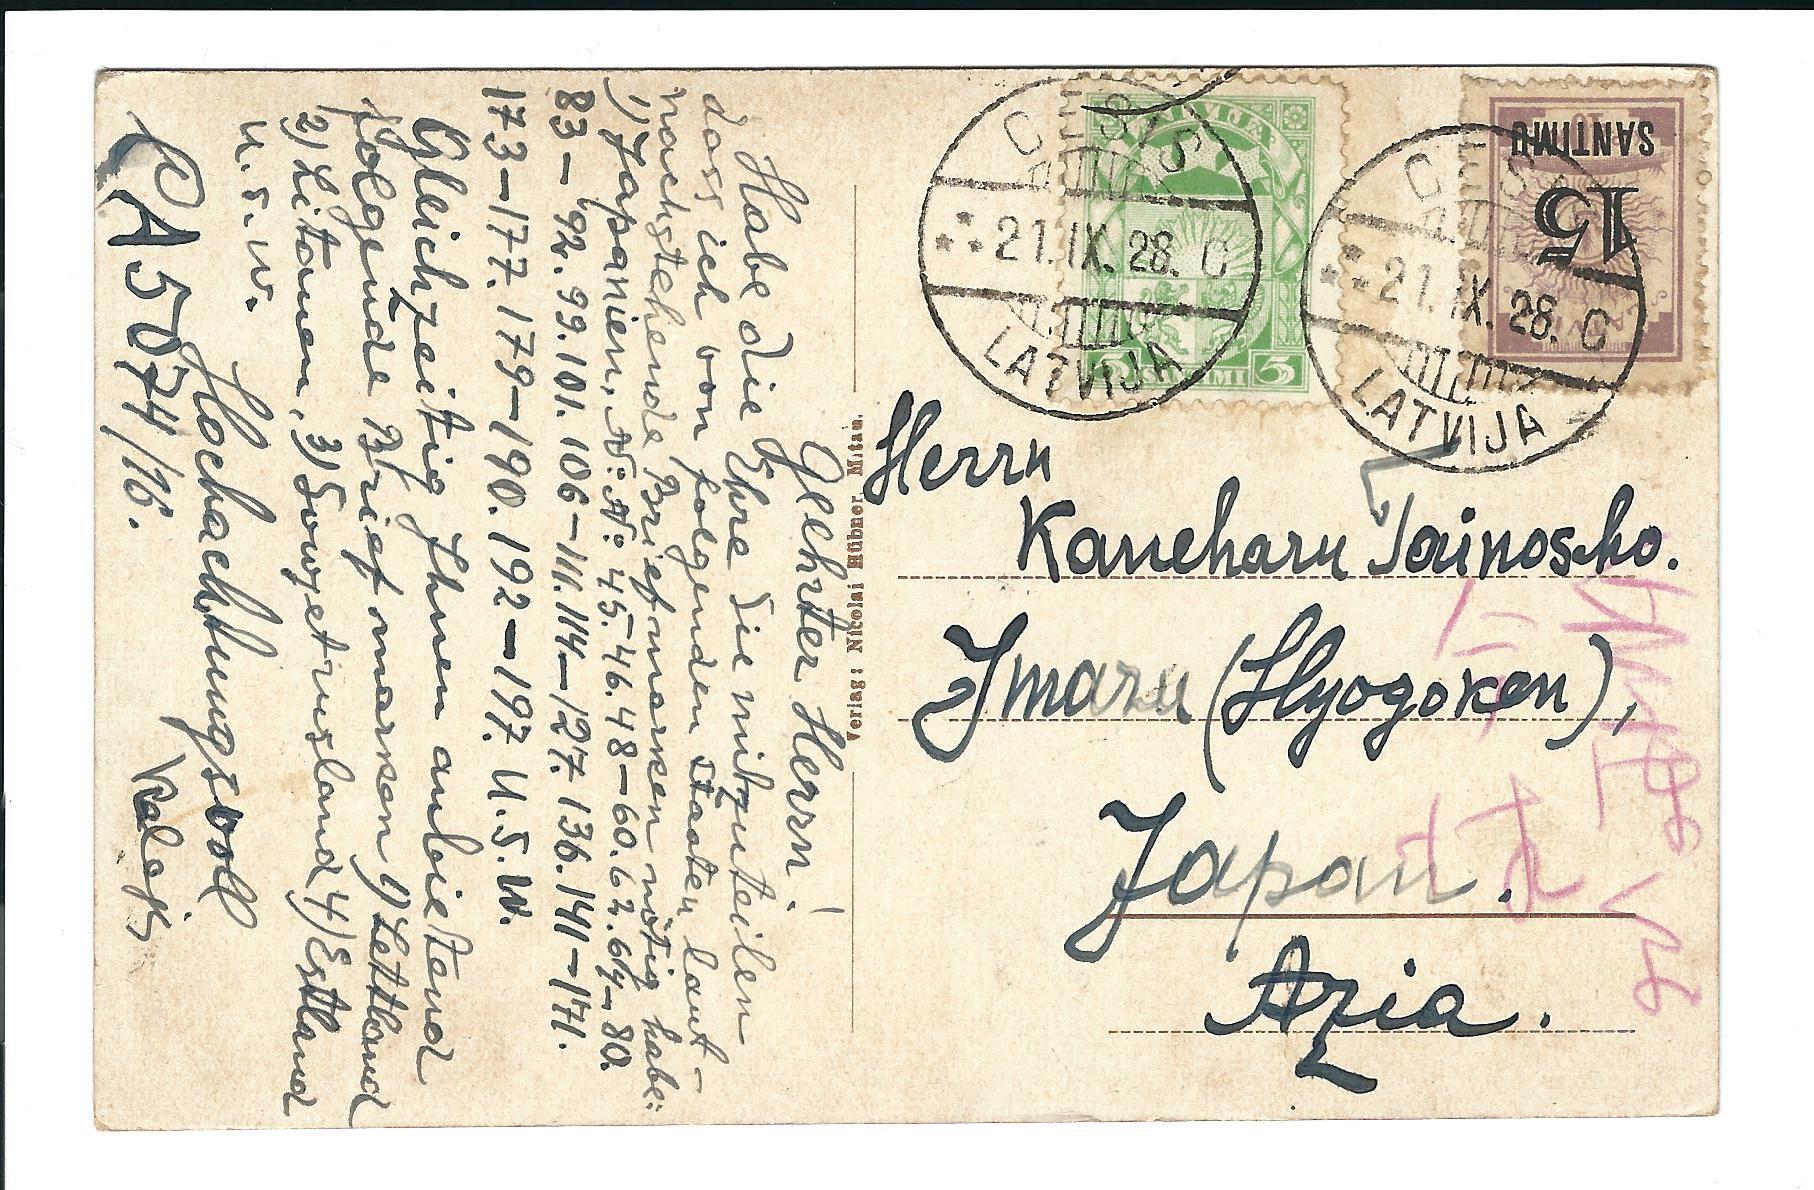 Geehrter Herrn!
Habe die Ehre Sie mitzuteilen
dass ich von folgenden Staaten laut-
nachstehende Briefmarken nötig habe:
1) Japanien, №№ 45.-46.48-60.62.64-80.
83-92.99.101.106-111.114-127.136.141-171.
173-177.179-190.192-197. U.S.W.
Gleichzeitig Ihnen anbietend
folgende Briefmarken 1) Lettland
2) Litauen, 3) Sowjetrusland 4) Estland
u.s.w.
Hochachtungsvoll
CA 5074/16.
Verlag: Nicolai Hübner, Mitau.
CESIS
21.IX.28. C
LATVIJA
LATVIJA
5 SANTIMI 5
CESIS
21.IX.28. C
LATVIJA
15
SANTIMU
10
LATVIJA
Herrn
Kaneharu Tainosko.
Imazu (Hyogoken),
Japan.
Azia.